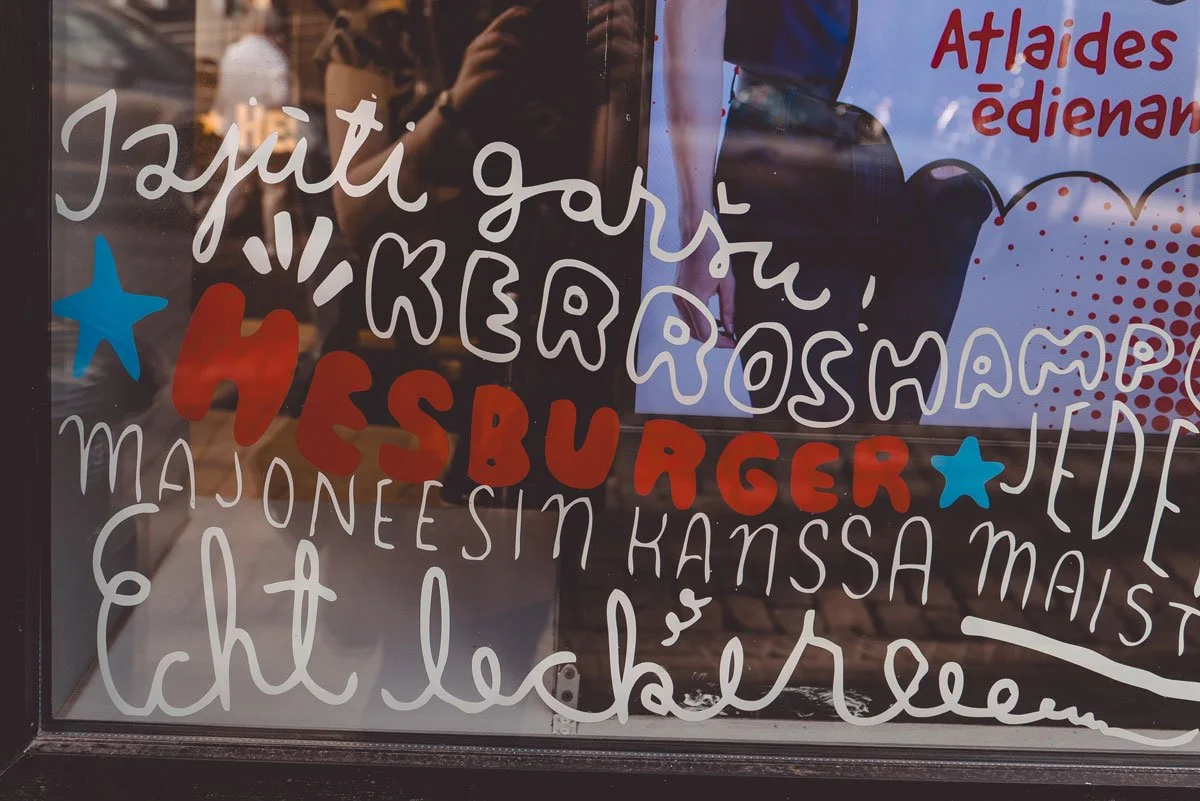 Atlaides
ēdienam
Sajūti garšu!
KERROSHAMP
HESBURGER JEDE
MAJONEESIN KANSSA MAIST
Echt lecker